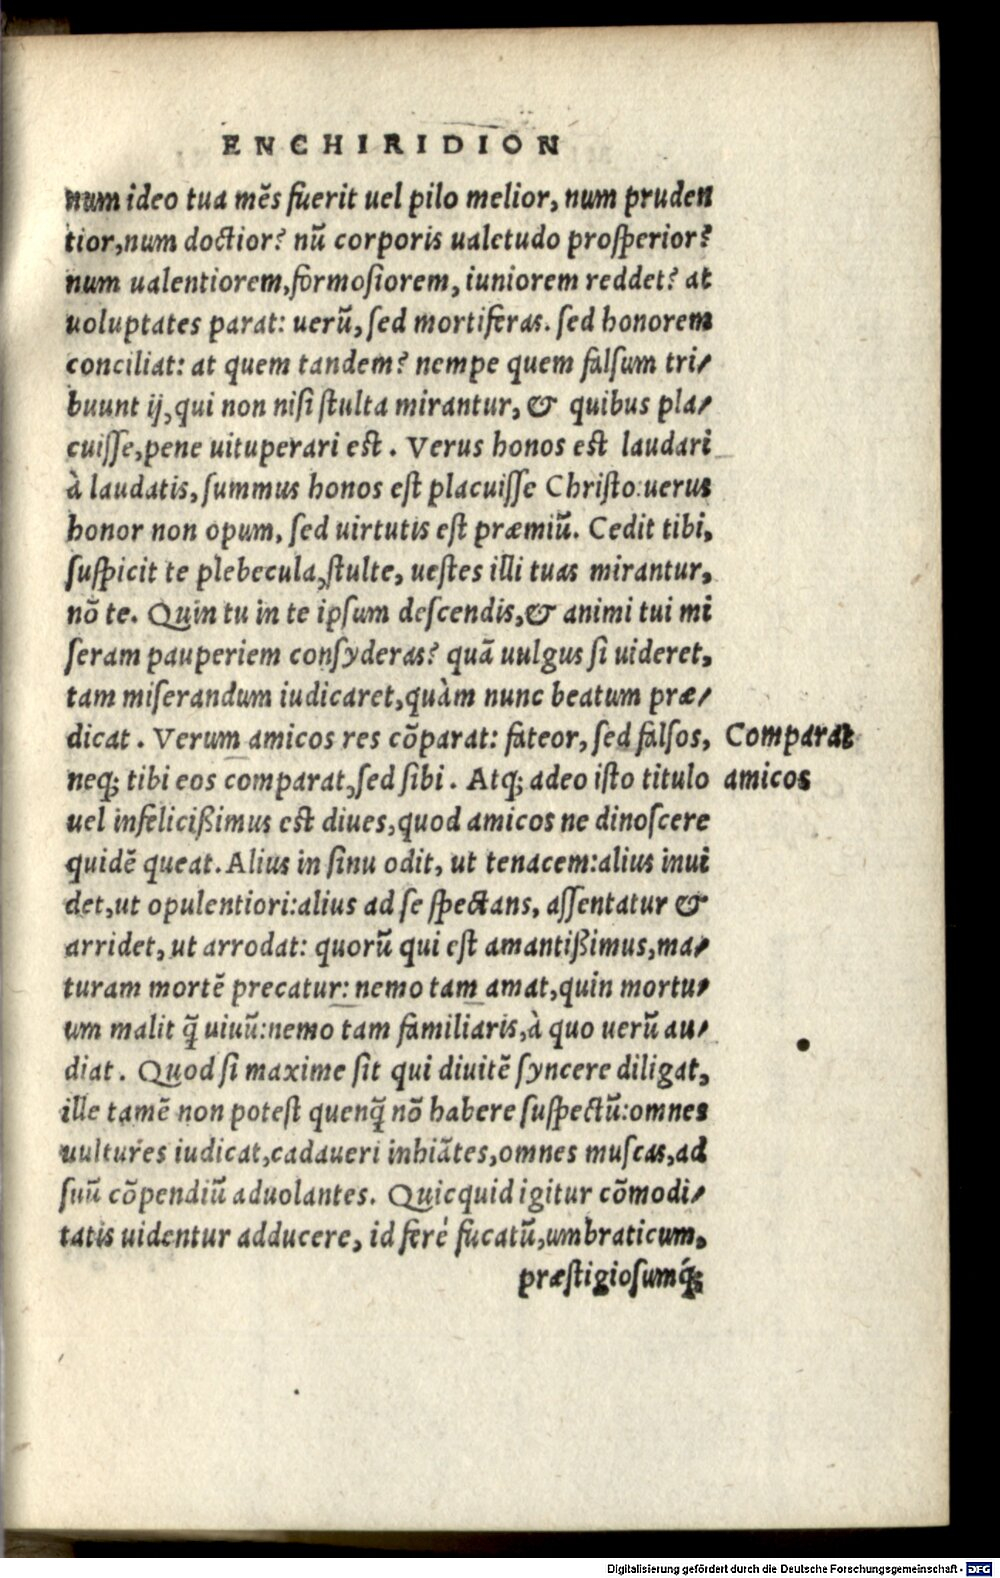 ENCHIRIDION
num ideo tua mẽs fuerit uel pilo melior, num pruden
tior, num doctior? nũ corporis ualetudo prosperior?
num ualentiorem, formosiorem, iuniorem reddet? at
uoluptates parat: uerũ, sed mortiferas. sed honorem
conciliat: at quem tandem? nempe quem falsum tri/
buunt ij, qui non nisi stulta mirantur, & quibus pla/
cuisse, pene uituperari est. Verus honos est laudari
à laudatis, summus honos est placuisse Christo: uerus
honor non opum, sed uirtutis est præmiũ. Cedit tibi,
suspicit te plebecula, stulte, uestes illi tuas mirantur,
nõ te. Quin tu in te ipsum descendis, & animi tui mi
seram pauperiem consyderas? quã uulgus si uideret,
tam miserandum iudicaret, quàm nunc beatum præ/
dicat. Verum amicos res cõparat: fateor, sed falsos,
Comparat
neq; tibi eos comparat, sed sibi. Atq; adeo isto titulo
amicos
uel infelicißimus est diues, quod amicos ne dinoscere
quidẽ queat. Alius in sinu odit, ut tenacem: alius inui
det, ut opulentiori: alius ad se spectans, assentatur &
arridet, ut arrodat: quorũ qui est amantißimus, ma/
turam mortẽ precatur: nemo tam amat, quin mortu/
um malit q̃ uiuũ: nemo tam familiaris, à quo uerũ au/
diat. Quod si maxime sit qui diuitẽ syncere diligat,
ille tamẽ non potest quenq̃ nõ habere suspectũ: omnes
uultures iudicat, cadaueri inhiãtes, omnes muscas, ad
suũ cõpendiũ aduolantes. Quicquid igitur cõmodi/
tatis uidentur adducere, id ferè fucatũ, umbraticum,
præstigiosumq́;
Digitalisierung gefördert durch die Deutsche Forschungsgemeinschaft - DFG